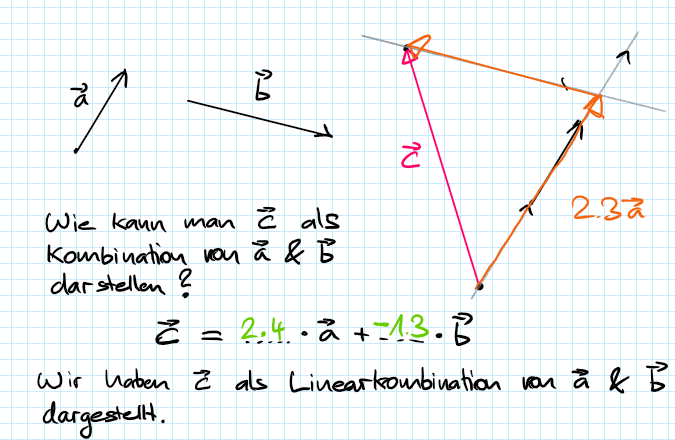 a⃗
b⃗
c⃗
2.3a⃗
Wie kann man c⃗ als
Kombination von a⃗ & b⃗
darstellen?
c⃗ = 2.4 · a⃗ + -1.3 · b⃗
Wir haben c⃗ als Linearkombination von a⃗ & b⃗
dargestellt.